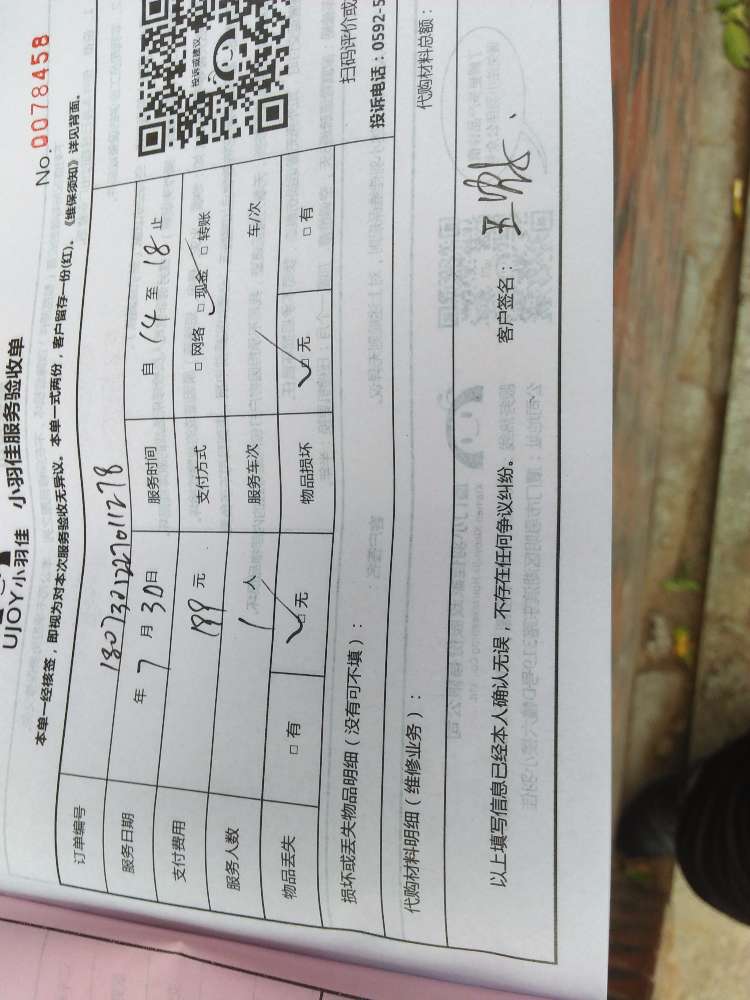 UJOY小羽佳 小羽佳服务验收单
No.0078458
本单一经核签，即视为对本次服务验收无异议。本单一式两份，客户留存一份(红)。《维保须知》详见背面。
订单编号 1807301227011278
服务日期 年 7 月 30 日 服务时间 自 14 至 18 止
支付费用 199 元 支付方式 □ 网络 □ 现金 □ 转账
服务人数 1 人 服务车次 车/次
物品丢失 □ 有 □ 无 物品损坏 □ 无 □ 有
投诉或建议
扫码评价或
投诉电话：0592-5
损坏或丢失物品明细（没有可不填）：
代购材料明细（维修业务）： 代购材料总额：
以上填写信息已经本人确认无误，不存在任何争议纠纷。 客户签名：